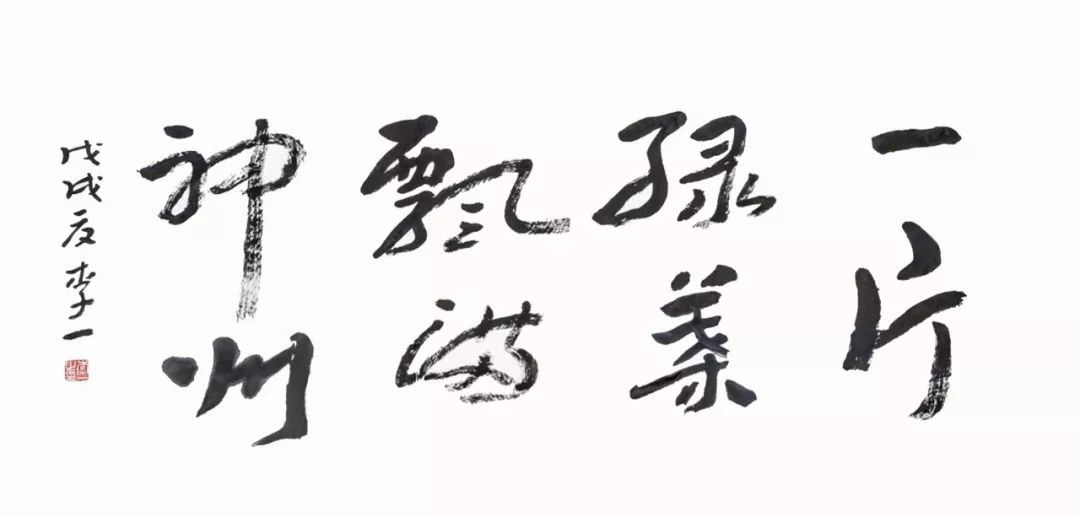 一片
绿叶
飘满
神州
戊戌夏 李一